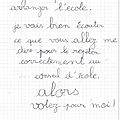 arranger l'école.
je vais bien écouter
ce que vous allez me
dire pour le répéter
correctement au
conseil d'école.
alors
votez pour moi !